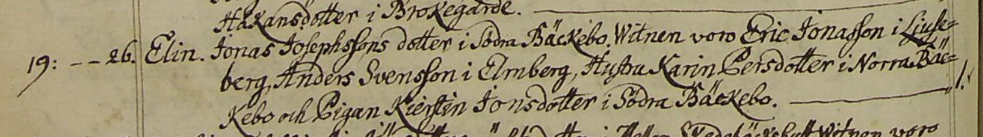 Håkansdotter i Brokegärde.
19: -- 26. Elin. Jonas Josephssons dotter i Södra Bäckebo, Witnen voro Eric Jonasson i Ljuse-
berg, Anders Svensson i Elmberg, Hustru Karin Persdotter i Norra Bäc-
kebo och Pigan Kierstin Jonsdotter i Södra Bäckebo. 1.
Witnen voro